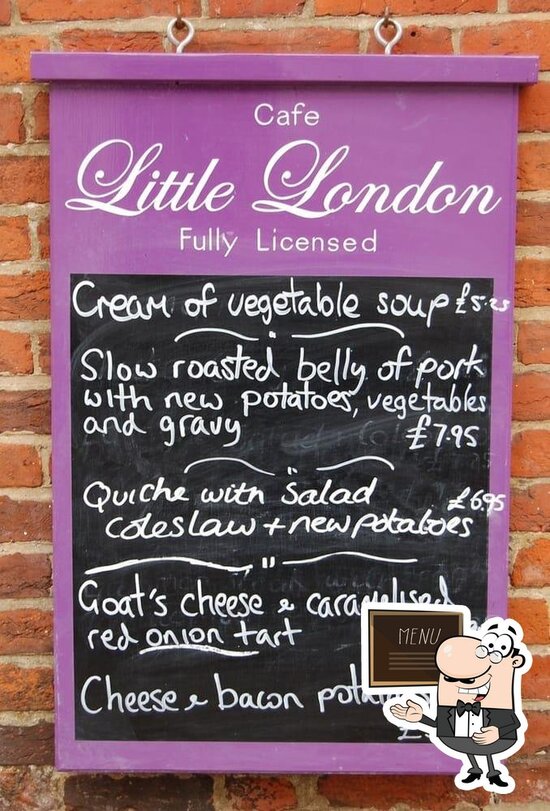 Cafe
Little London
Fully Licensed
Cream of vegetable soup £5.25
Slow roasted belly of pork
with new potatoes, vegetables
and gravy £7.95
Quiche with Salad £6.95
coleslaw + new potatoes
Goat's cheese & caramelised
red onion tart
Cheese & bacon
£
MENU